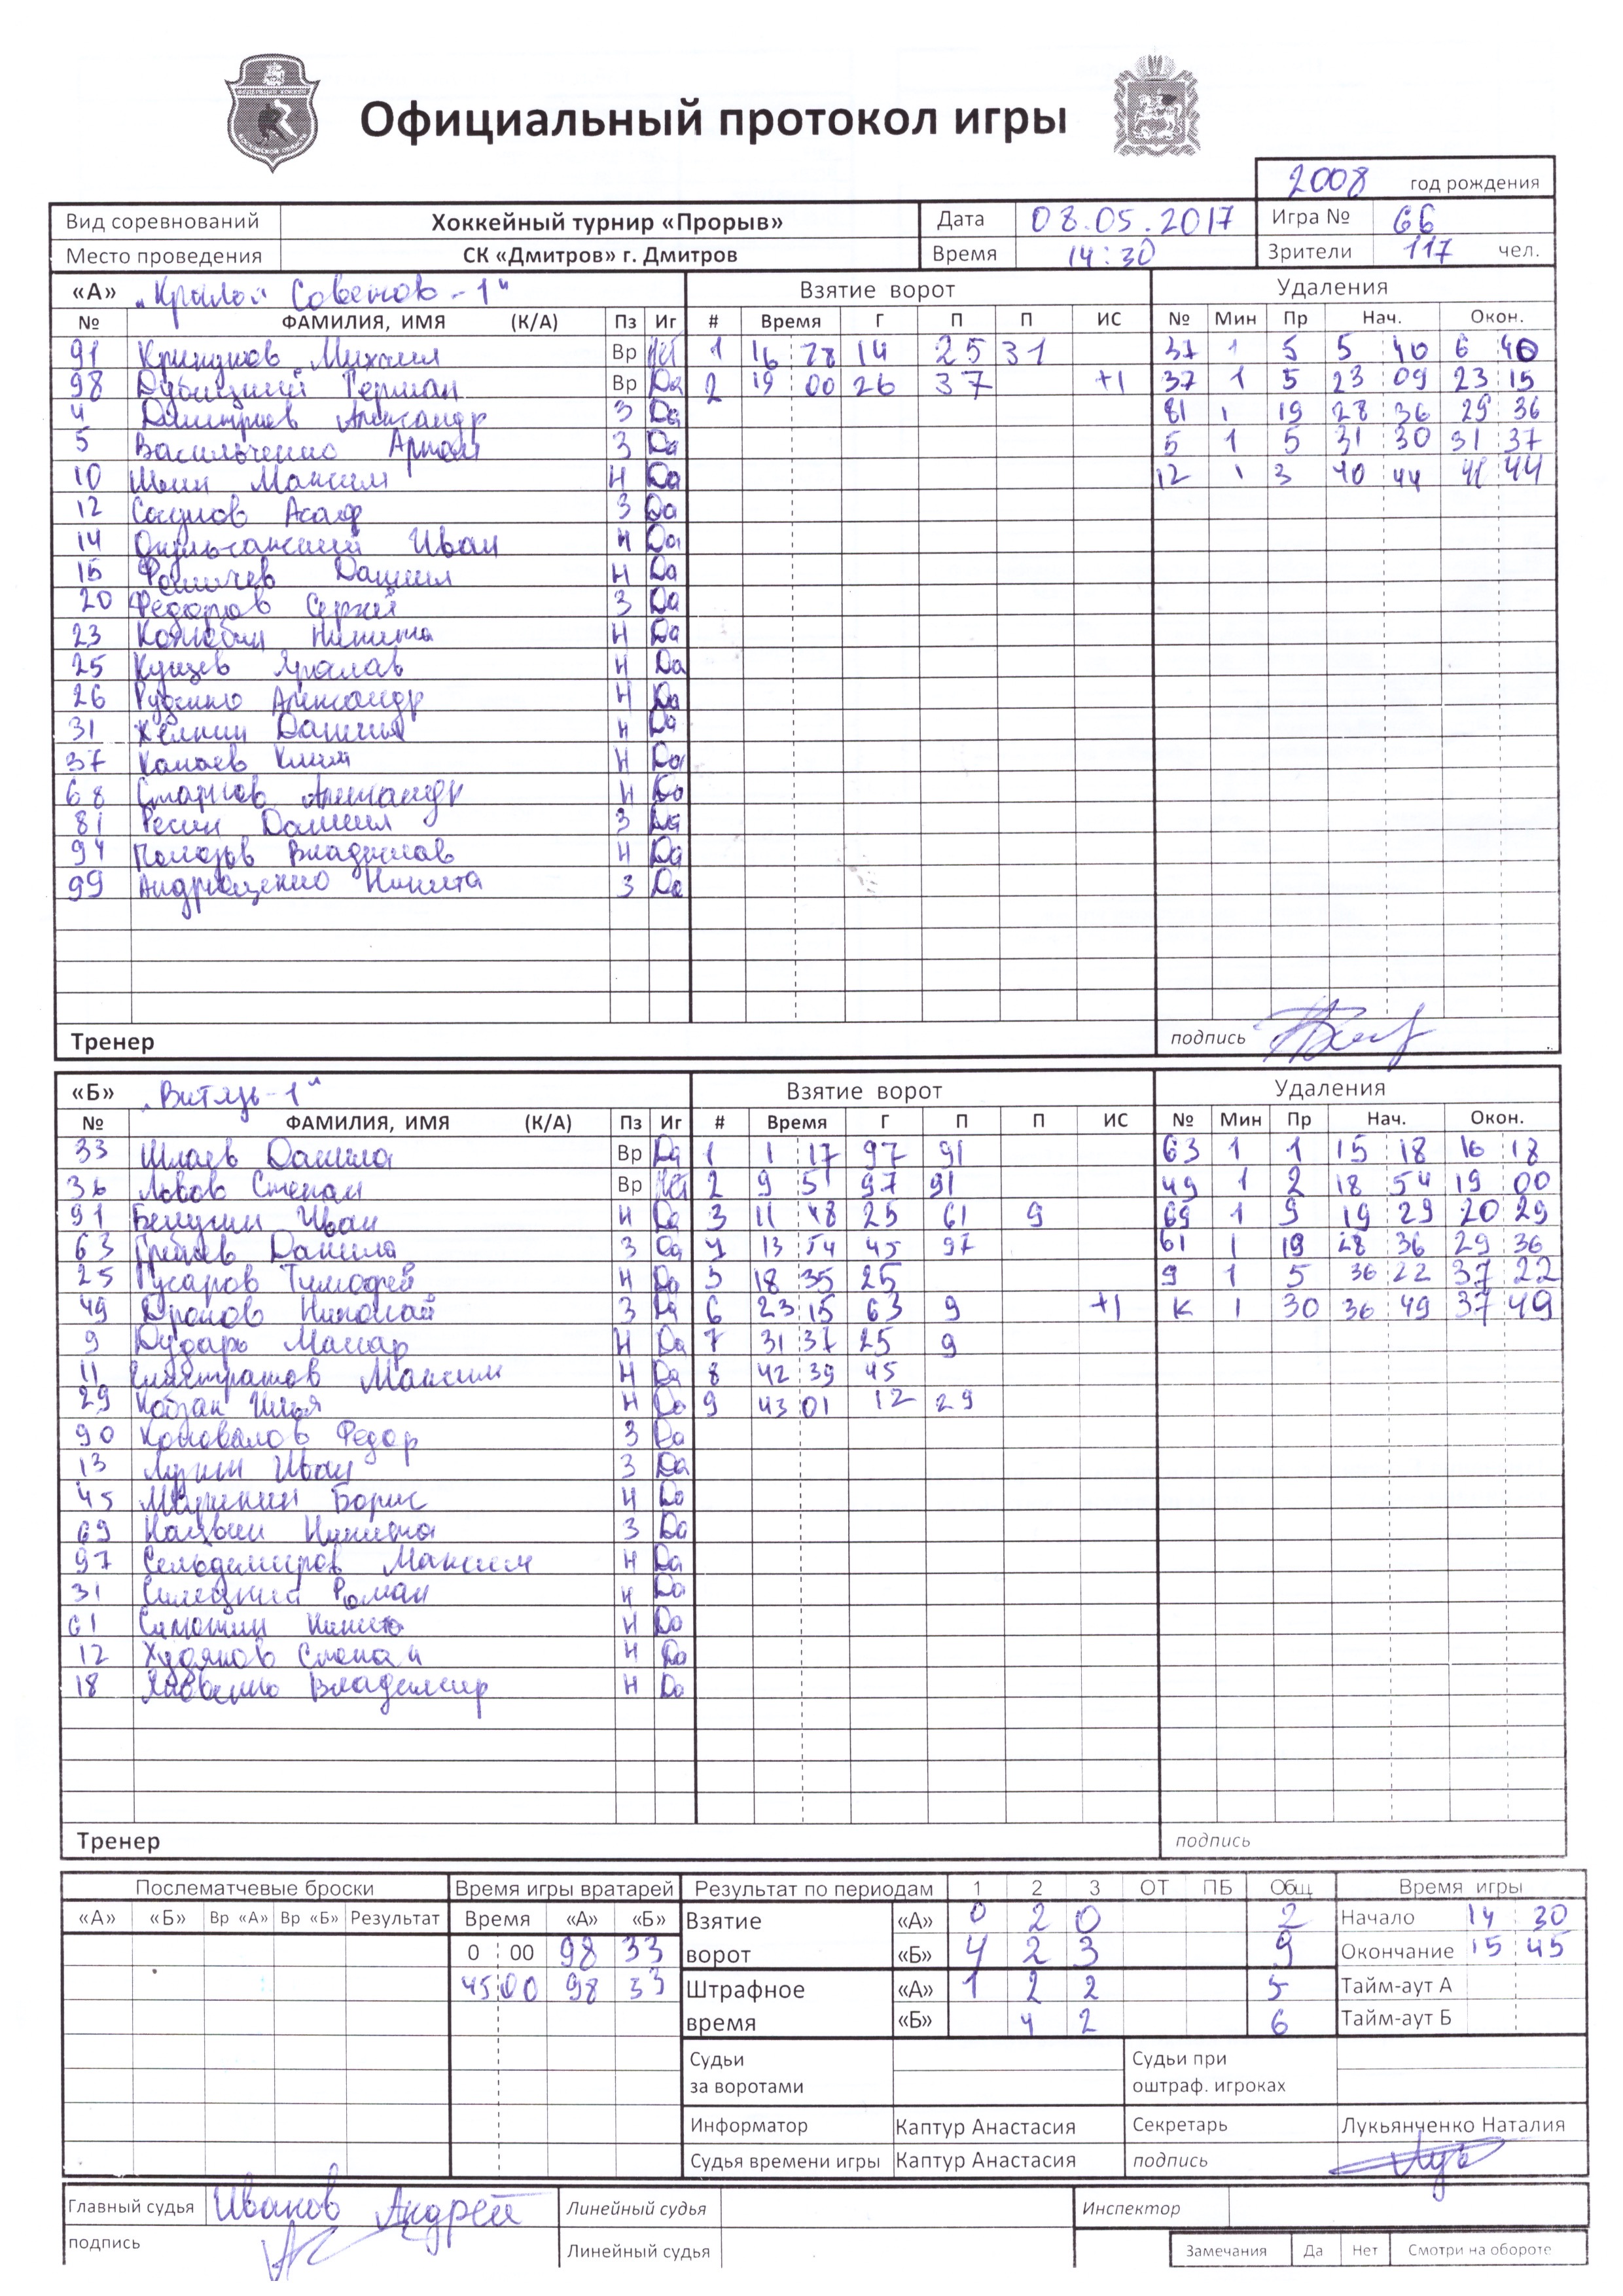 Официальный протокол игры
2008 год рождения
Вид соревнований Хоккейный турнир «Прорыв» Дата 08.05.2017 Игра № 66
Место проведения СК «Дмитров» г. Дмитров Время 14:30 Зрители 117 чел.
«А» Взятие ворот Удаления
№ ФАМИЛИЯ, ИМЯ (К/А) Пз Иг # Время Г П П ИС № Мин Пр Нач. Окон.
91 Михаил Вр Нет 1 16 28 14 25 31 37 1 5 5 40 6 40
98 Дубицкий Герман Вр Да 2 19 00 26 37 +1 37 1 5 23 09 23 15
4 Дмитриев Александр З Да 81 1 19 28 36 29 36
5 Васильченко Артем З Да 5 1 5 31 30 31 37
10 Шеин Максим Н Да 12 1 3 40 44 41 44
12 З Да
14 Иван Н Да
15 Даниил Н Да
20 Федоров Сергей З Да
23 Никита Н Да
25 Ярослав Н Да
26 Руденко Александр Н Да
31 Даниил Н Да
37 Клим Н Да
68 Александр Н Да
81 Ресин Даниил З Да
94 Полозов Владислав Н Да
99 Андрющенко Никита З Да
Тренер подпись
«Б» „Витязь-1“ Взятие ворот Удаления
№ ФАМИЛИЯ, ИМЯ (К/А) Пз Иг # Время Г П П ИС № Мин Пр Нач. Окон.
33 Шлаев Данила Вр Да 1 1 17 97 91 63 1 1 15 18 16 18
36 Степан Вр Нет 2 9 51 97 91 49 1 2 18 54 19 00
91 Иван Н Да 3 11 48 25 61 9 69 1 9 19 29 20 29
63 Данила З Да 4 13 54 45 97 61 1 19 28 36 29 36
25 Гусаров Тимофей Н Да 5 18 35 25 9 1 5 36 22 37 22
49 Дронов Николай З Да 6 23 15 63 9 +1 К 1 30 36 49 37 49
9 Дударь Н Да 7 31 37 25 9
11 Максим Н Да 8 42 39 45
29 Кобзан Илья Н Да 9 43 01 12 29
90 Коновалов Федор З Да
13 Иван З Да
45 Борис Н Да
69 Никита З Да
97 Максим Н Да
31 Роман Н Да
61 Никита Н Да
12 Худяков Степан Н Да
18 Яковенко Владимир Н Да
Тренер подпись
Послематчевые броски Время игры вратарей Результат по периодам 1 2 3 ОТ ПБ Общ Время игры
«А» «Б» Вр «А» Вр «Б» Результат Время «А» «Б» Взятие «А» 0 2 0 2 Начало 14 30
0 00 98 33 ворот «Б» 4 2 3 9 Окончание 15 45
45 00 98 33 Штрафное «А» 1 2 2 5 Тайм-аут А
время «Б» 4 2 6 Тайм-аут Б
Судьи за воротами Судьи при оштраф. игроках
Информатор Каптур Анастасия Секретарь Лукьянченко Наталия
Судья времени игры Каптур Анастасия подпись
Главный судья Иванов Андрей Линейный судья Инспектор
подпись Линейный судья Замечания Да Нет Смотри на обороте